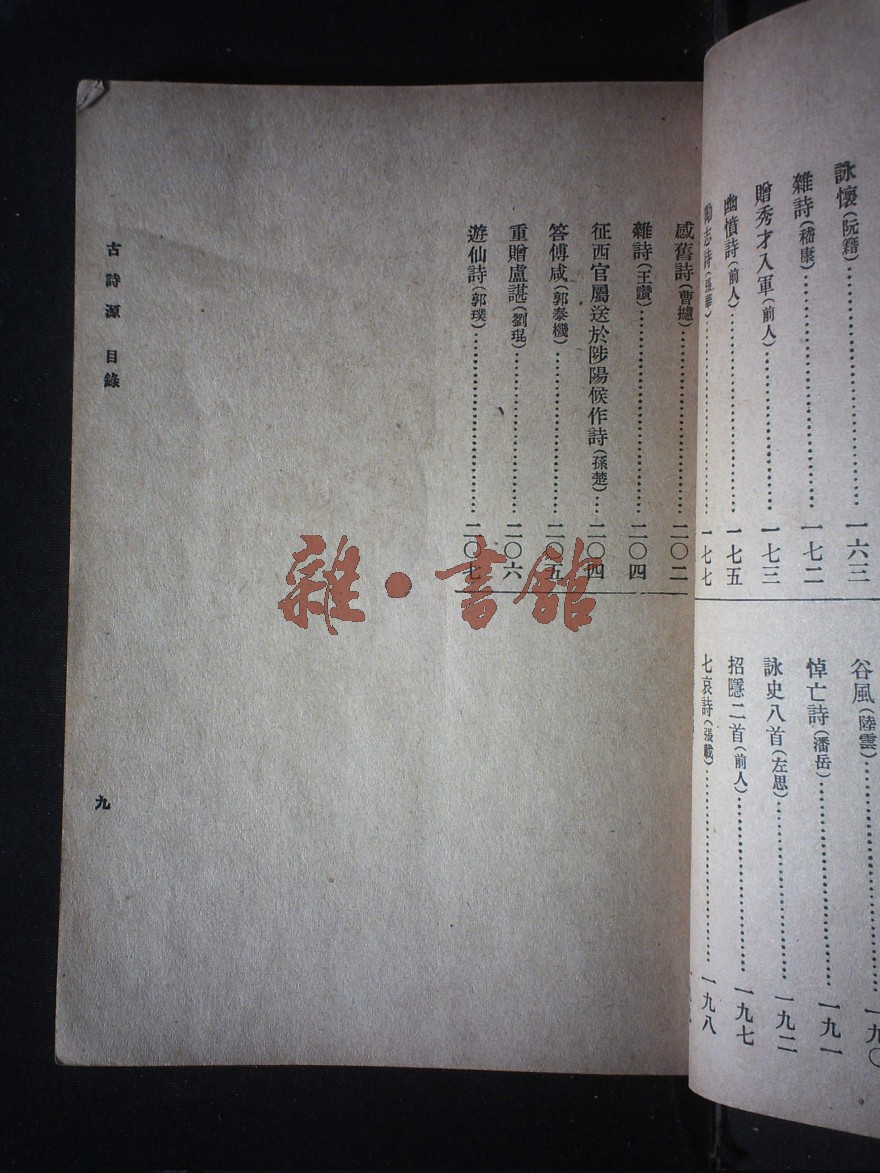 詠懷(阮籍)……一六三
雜詩(嵇康)……一七二
贈秀才入軍(前人)……一七三
幽憤詩(前人)……一七五
勵志詩(張華)……一七七
谷風(陸雲)……一九〇
悼亡詩(潘岳)……一九一
詠史八首(左思)……一九二
招隱二首(前人)……一九七
七哀詩(張載)……一九八
感舊詩(曹攄)……二〇二
雜詩(王讚)……二〇四
征西官屬送於陟陽候作詩(孫楚)……二〇四
答傅咸(郭泰機)……二〇五
重贈盧諶(劉琨)……二〇六
遊仙詩(郭璞)……二〇七
古詩源 目錄
九
雜·書館